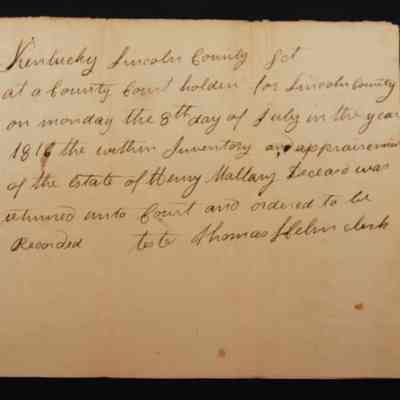 Kentucky Lincoln County Sct
at a County Court holden for Lincoln County
on monday the 8th day of July in the year
1816 the within Inventory and appraisement
of the Estate of Henry Mallary Deceasd was
returned unto Court and ordered to be
Recorded teste Thomas Helm clerk